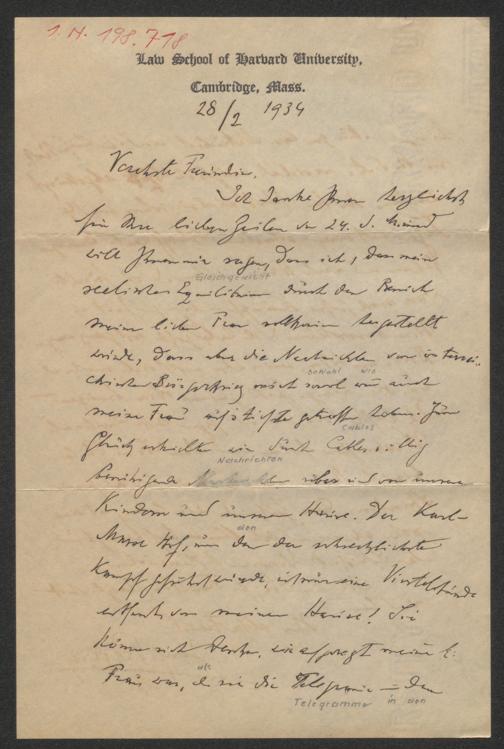 I. N. 198.718
Law School of Harvard University,
Cambridge, Mass.
28/2 1934
Verehrte Freundin,
Ich danke Ihnen herzlichst
für Ihre lieben Zeilen vom 24. d. M. und
will Ihnen nur sagen, dass ich, dass mein
Gleichgewicht
seelisches Equilibrium durch den Besuch
meiner lieben Frau vollkommen hergestellt
wurde, dass aber die Nachrichten vom österrei-
sowohl wie
chischen Bürgerkrieg mich sowol wie auch
meine Frau aufs tiefste getroffen haben. Zum
Cables
Glück erhielten wir durch Cables völlig
Nachrichten
beruhigende über und von unseren
Kindern und unserem Hause. Der Karl-
den
Marx Hof, um den der schrecklichste
Kampf geführt wurde, ist nur eine Viertelstunde
entfernt von meinem Hause! Sie
können sich denken, wie aufgeregt meine l.
als
Frau war, als sie die Telegramme in den
Telegramme in den